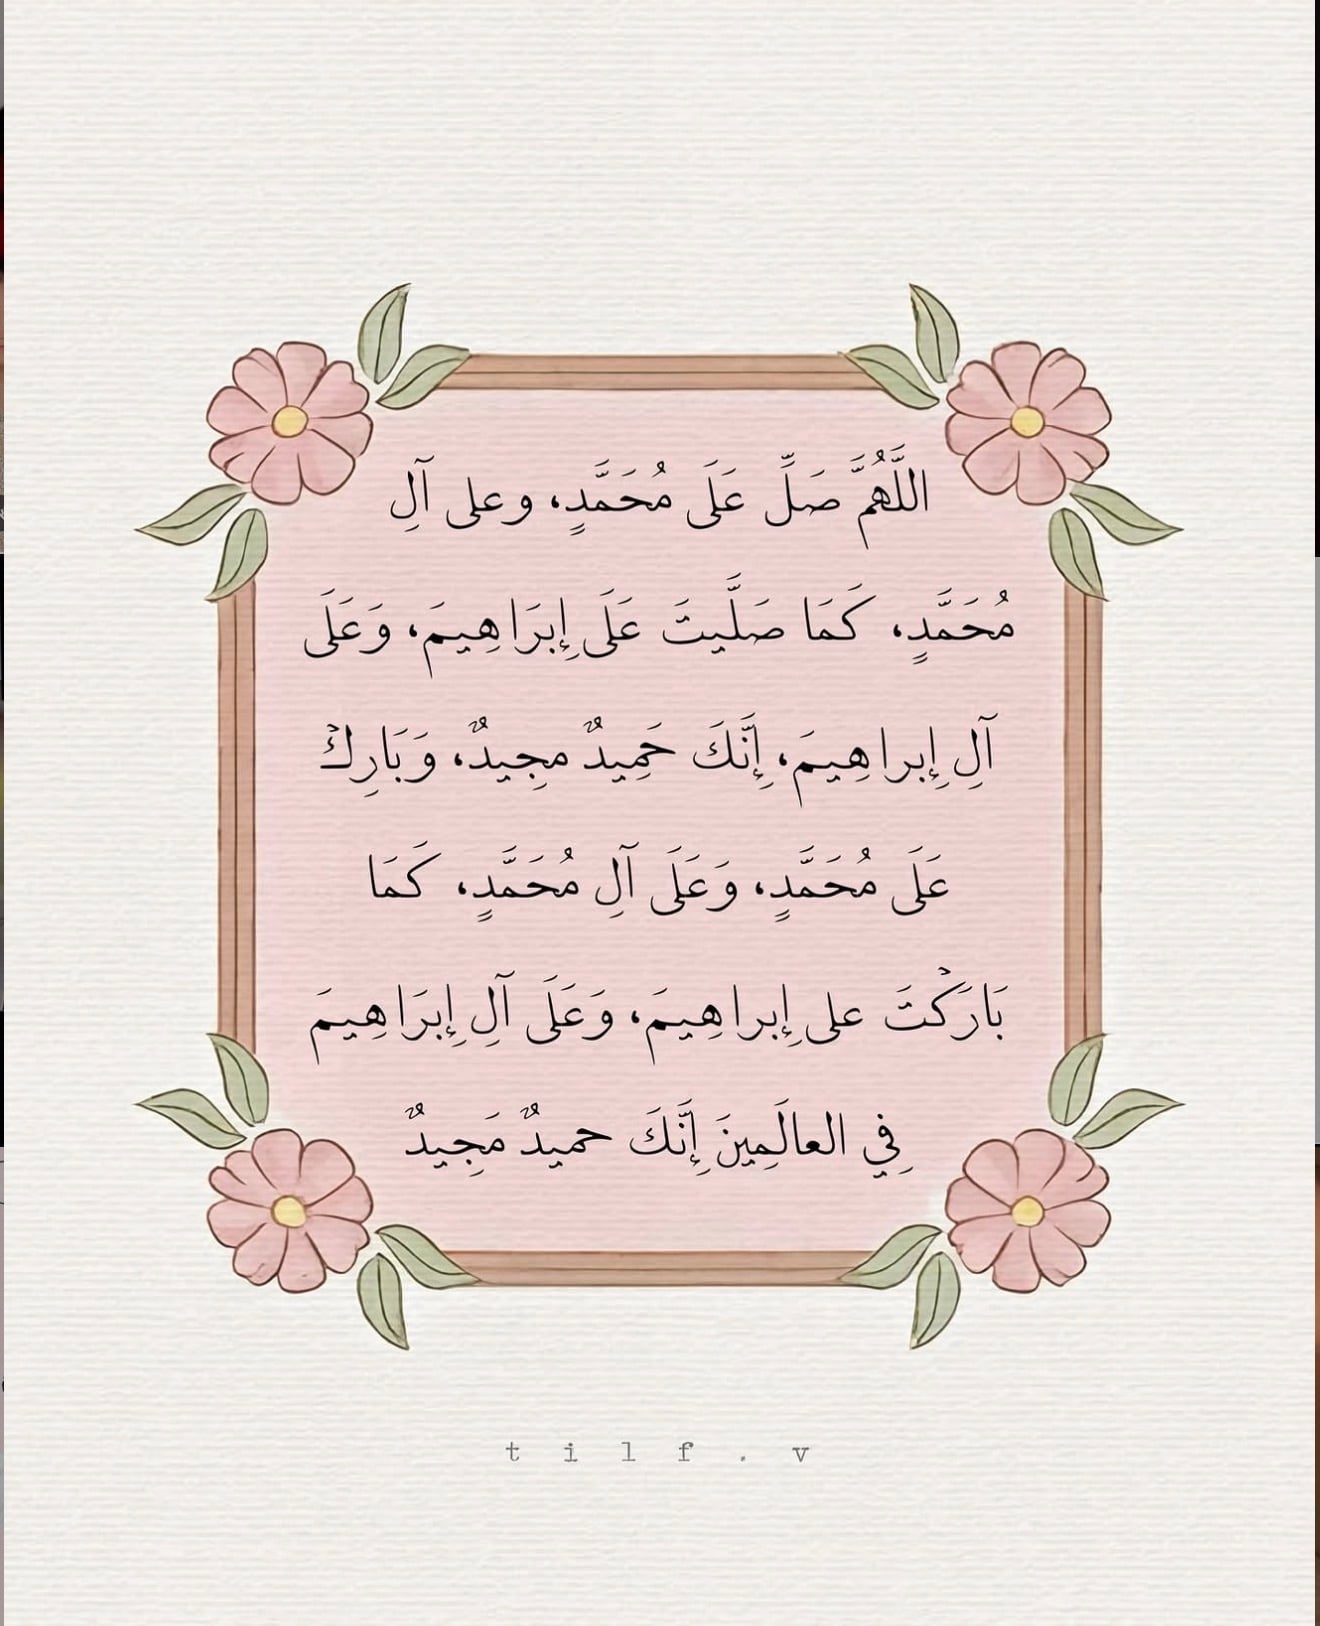 اللَّهُمَّ صَلِّ عَلَى مُحَمَّدٍ، وعلى آلِ
مُحَمَّدٍ، كَمَا صَلَّيتَ عَلَى إِبرَاهِيمَ، وَعَلَى
آلِ إِبراهِيمَ، إِنَّكَ حَمِيدٌ مجِيدٌ، وَبَارِكْ
عَلَى مُحَمَّدٍ، وَعَلَى آلِ مُحَمَّدٍ، كَمَا
بَارَكْتَ على إِبراهِيمَ، وَعَلَى آلِ إِبرَاهِيمَ
فِي العالَمِينَ إِنَّكَ حميدٌ مَجِيدٌ
tilf.v